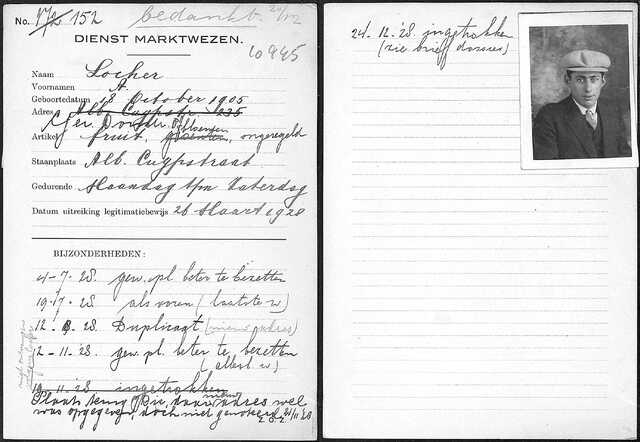 No. 152 bedankt. 20/12
DIENST MARKTWEZEN.
10945
Naam Locher
Voornamen A
Geboortedatum 18 October 1905
Adres Alb. Cuypstr 235
Ger. Doustr.
Artikel fruit, groenten, ongeregeld
Staanplaats Alb. Cuypstraat
Gedurende Maandag t/m Zaterdag
Datum uitreiking legitimatiebewijs 26 Maart 1928
BIJZONDERHEDEN:
4-7-28. gew. pl. beter te bezetten
19-7-28 als voren (laatste w)
12-9-28. Duplicaat (nieuw adres)
2-11-28. gew. pl. beter te bezetten
(allerl. w)
19-11-28 ingetrokken
Plaats terug daar nieuw adres wel
was opgegeven, doch niet genoteerd 21/11 28
24-12-28. ingetrokken
(zie brief dossier)